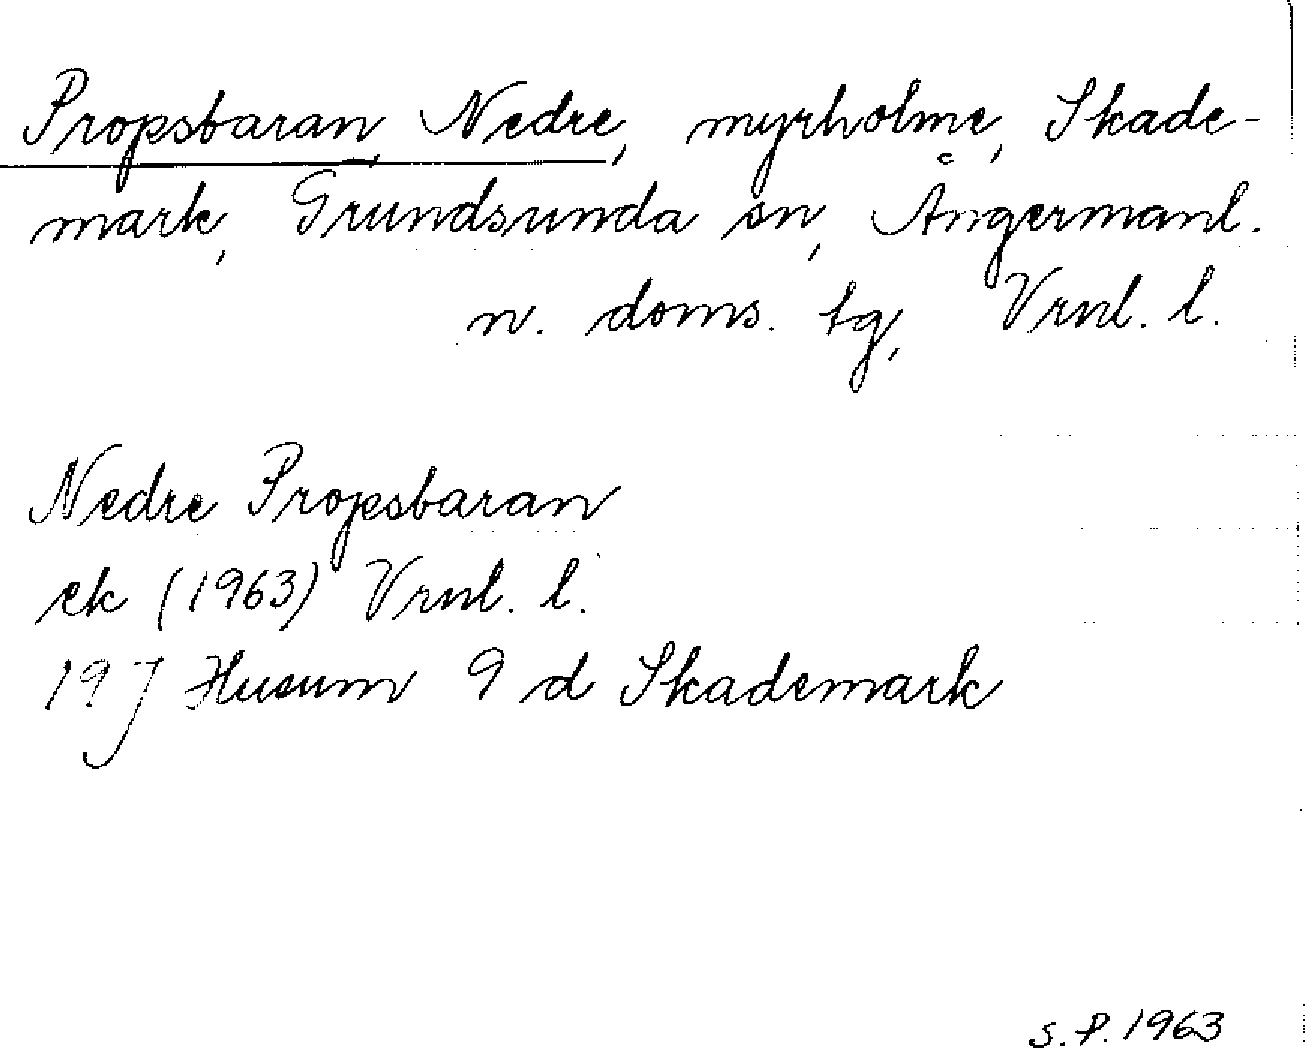 Propsbaran, Nedre, myrholme, Skade-
mark, Grundsunda sn, Ångermanl.
n. doms. tg, Vrnl. l.
Nedre Propsbaran
ek (1963) Vrnl. l.
19 J Husum 9 d Skademark
S.P. 1963